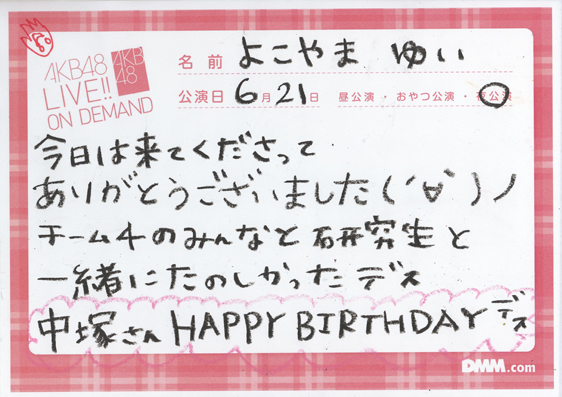 AKB48
LIVE!!
ON DEMAND
AKB
48
名前 よこやま ゆい
公演日 6月21日 昼公演・おやつ公演・夜公演
今日は来てくださって
ありがとうございました(´∀`)ノ
チーム4のみんなと研究生と
一緒にたのしかったデス
中塚さん HAPPY BIRTHDAY デス
DMM.com